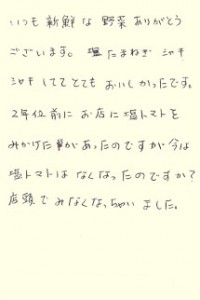 いつも新鮮な野菜ありがとう
ございます。塩たまねぎシャキ
シャキしててとてもおいしかったです。
2年位前にお店に塩トマトを
みかけた事があったのですが今は
塩トマトはなくなったのですか?
店頭でみなくなっちゃいました。